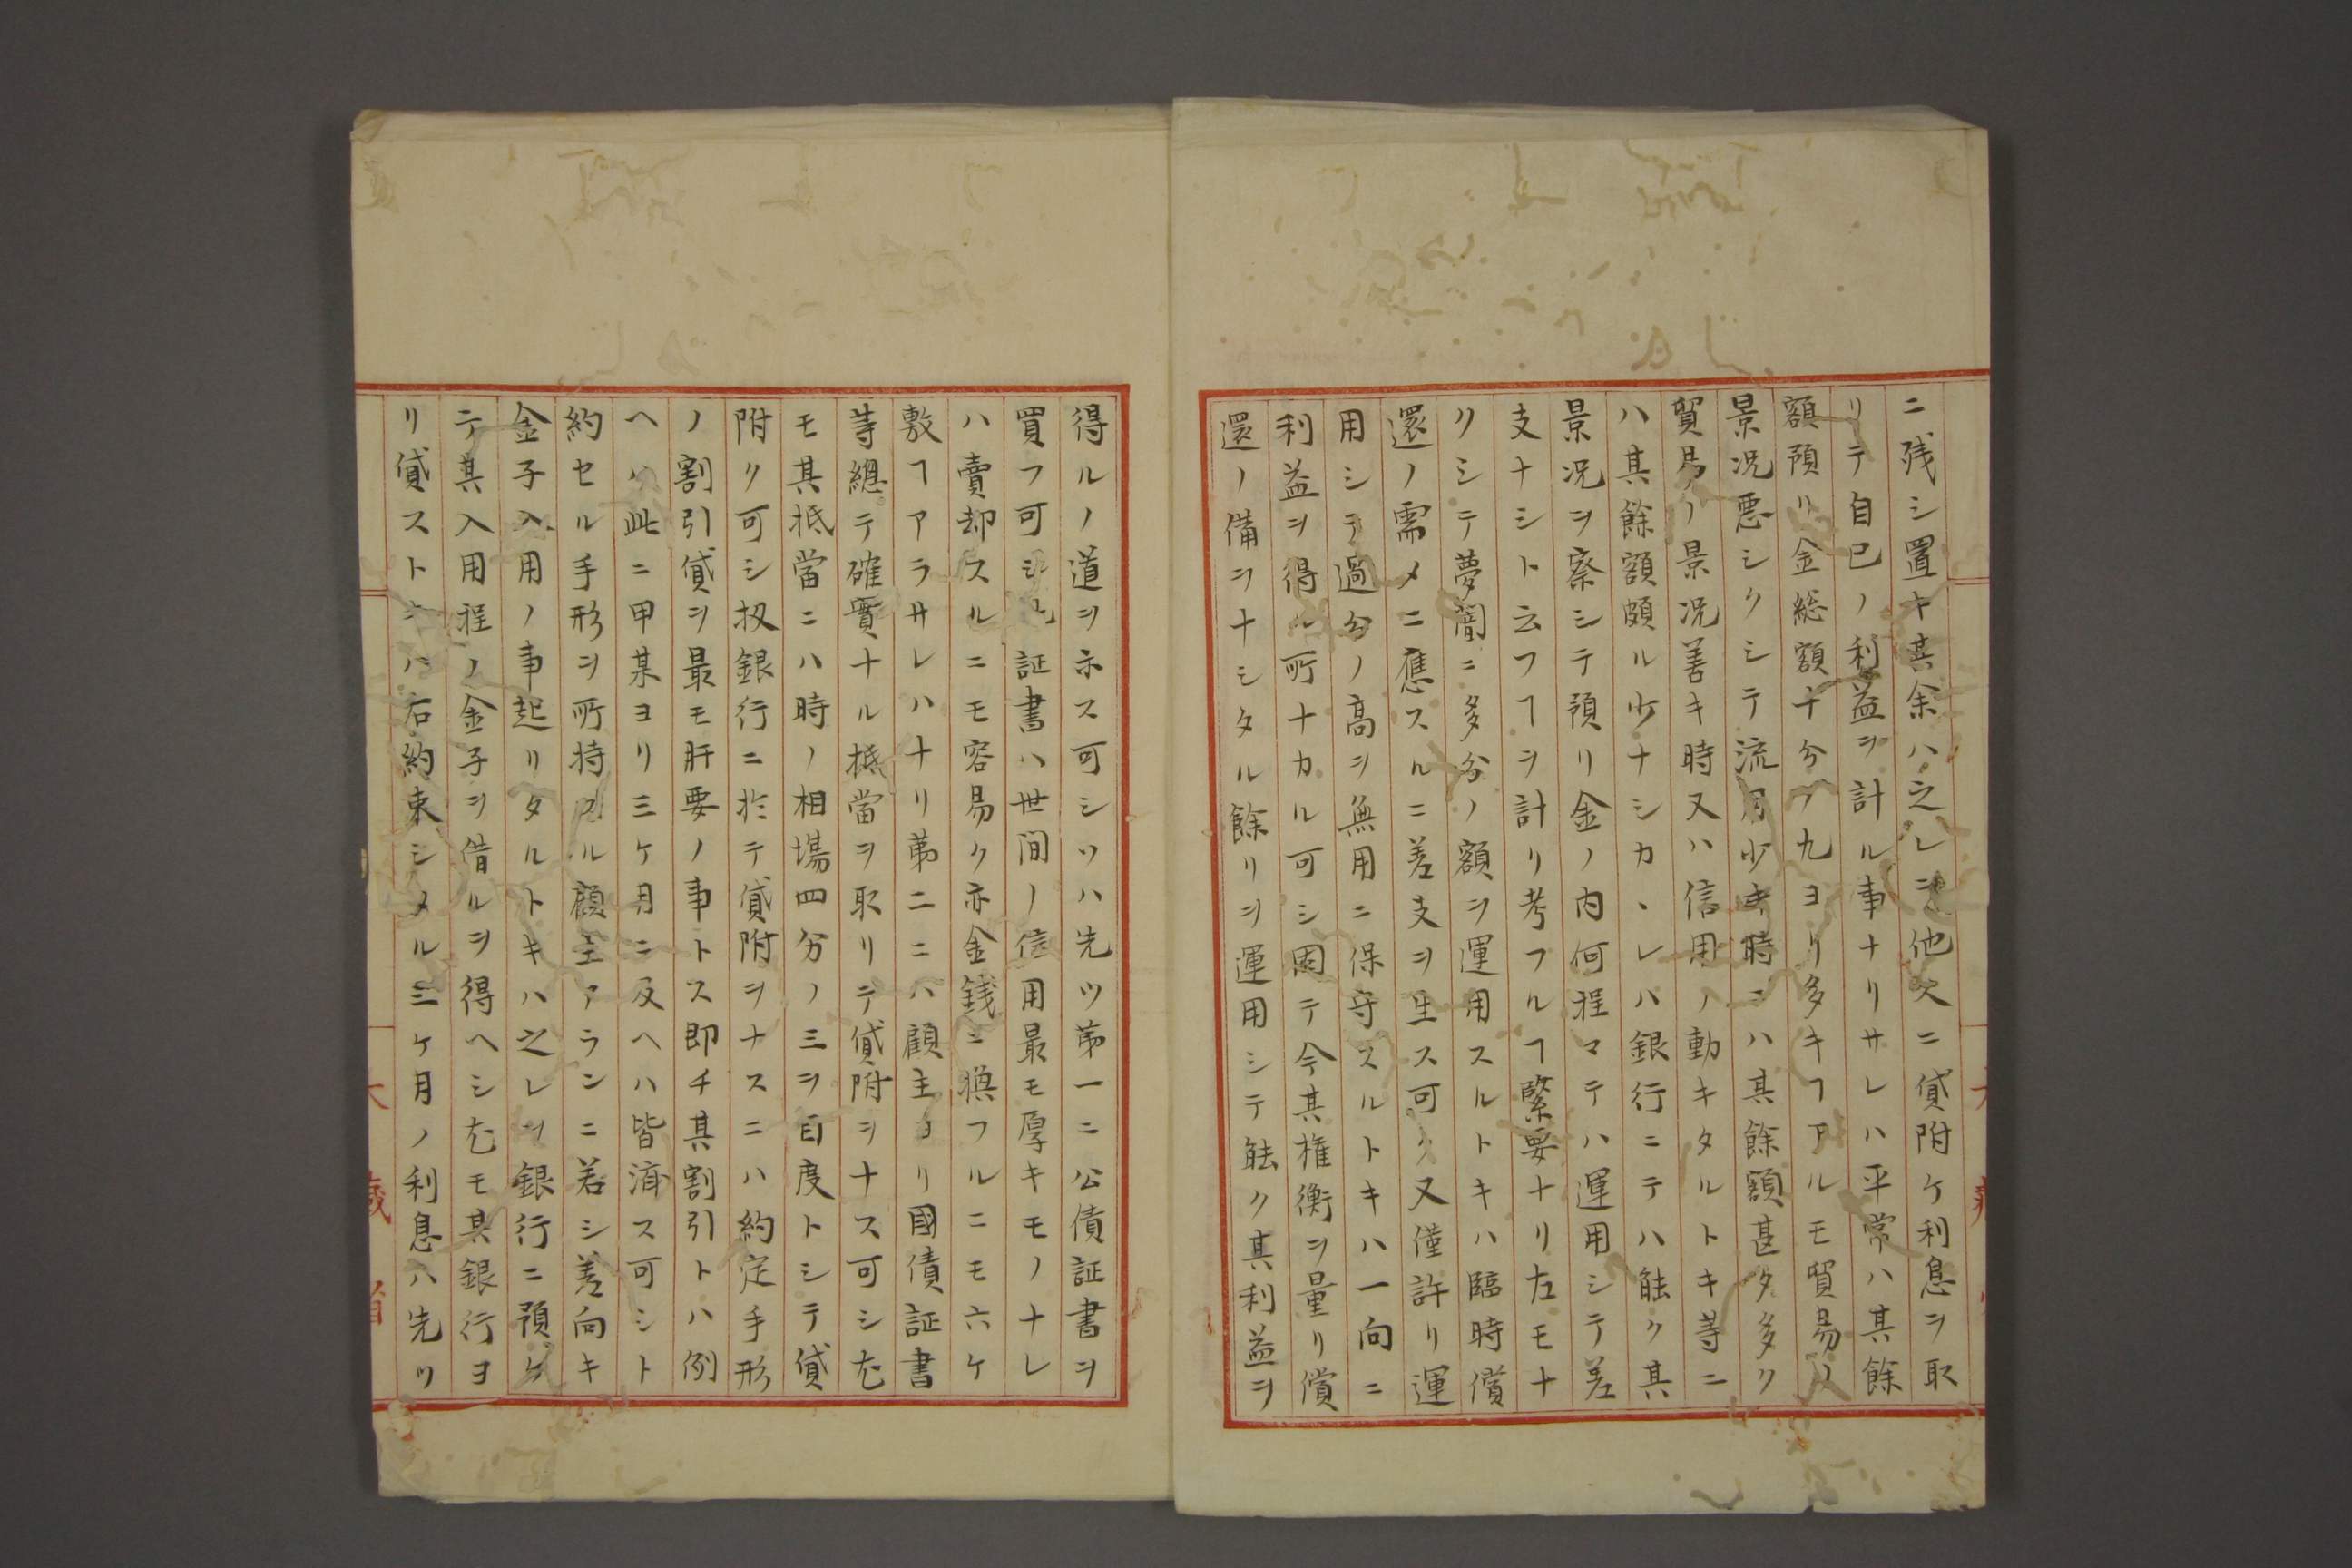 ニ残シ置キ其余ハ之レヲ他人ニ貸附ケ利息ヲ取
リテ自己ノ利益ヲ計ル事ナリサレハ平常ハ其餘
額預リ金総額十分ノ九ヨリ多キヿアルモ貿易ノ
景況悪シクシテ流用少キ時ニハ其餘額甚タ多ク
貿易ノ景況善キ時又ハ信用ノ動キタルトキ等ニ
ハ其餘額頗ル少ナシカヽレハ銀行ニテハ能ク其
景况ヲ察シテ預リ金ノ内何程マテハ運用シテ差
支ナシト云フヿヲ計リ考フルヿ緊要ナリ左モナ
クシテ夢闇ニ多分ノ額ヲ運用スルトキハ臨時償
還ノ需メニ應スルニ差支ヲ生ス可ク又僅許リ運
用シテ過分ノ高ヲ無用ニ保守スルトキハ一向ニ
利益ヲ得ル所ナカル可シ因テ今其権衡ヲ量リ償
還ノ備ヲナシタル餘リヲ運用シテ能ク其利益ヲ
得ルノ道ヲ示ス可シソハ先ツ第一ニ公債証書ヲ
買フ可シ此証書ハ世間ノ信用最モ厚キモノナレ
ハ賣却スルニモ容易ク亦金銭ニ換フルニモ六ケ
敷ヿアラサレハナリ第二ニハ顧主ヨリ國債証書
等總テ確實ナル抵當ヲ取リテ貸附ヲナス可シ尤
モ其抵當ニハ時ノ相場四分ノ三ヲ目度トシテ貸
附ク可シ扨銀行ニ於テ貸附ヲナスニハ約定手形
ノ割引貸ヲ最モ肝要ノ事トス即チ其割引トハ例
ヘハ此ニ甲某ヨリ三ケ月ニ及ヘハ皆済ス可シト
約セル手形ヲ所持スル顧主アランニ若シ差向キ
金子入用ノ事起リタルトキハ之レヲ銀行ニ預ケ
テ其入用程ノ金子ヲ借ルヲ得ヘシ尤モ其銀行ヨ
リ貸ストキハ右約束シメル三ケ月ノ利息ハ先ツ
大蔵省